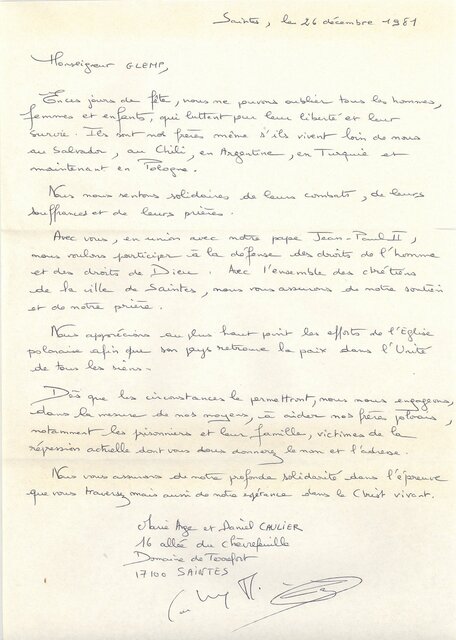 Saintes, le 26 décembre 1981
Monseigneur GLEMP,
En ces jours de fête, nous ne pouvons oublier tous les hommes,
femmes et enfants, qui luttent pour leur liberté et leur
survie. Ils sont nos frères même s'ils vivent loin de nous
au Salvador, au Chili, en Argentine, en Turquie et
maintenant en Pologne.
Nous nous sentons solidaires de leurs combats, de leurs
souffrances et de leurs prières.
Avec vous, en union avec notre pape Jean-Paul II,
nous voulons participer à la défense des droits de l'homme
et des droits de Dieu. Avec l'ensemble des chrétiens
de la ville de Saintes, nous vous assurons de notre soutien
et de notre prière.
Nous apprécions au plus haut point les efforts de l'Eglise
polonaise afin que son pays retrouve la paix dans l'Unité
de tous les siens.
Dès que les circonstances le permettront, nous nous engageons,
dans la mesure de nos moyens, à aider nos frères polonais,
notamment les prisonniers et leur famille, victimes de la
répression actuelle dont vous nous donnerez le nom et l'adresse.
Nous vous assurons de notre profonde solidarité dans l'épreuve
que vous traversez mais aussi de notre espérance dans le Christ vivant.
Marie et Daniel CAULIER
16 allée du Chèvrefeuille
Domaine de Terrefort
17100 SAINTES